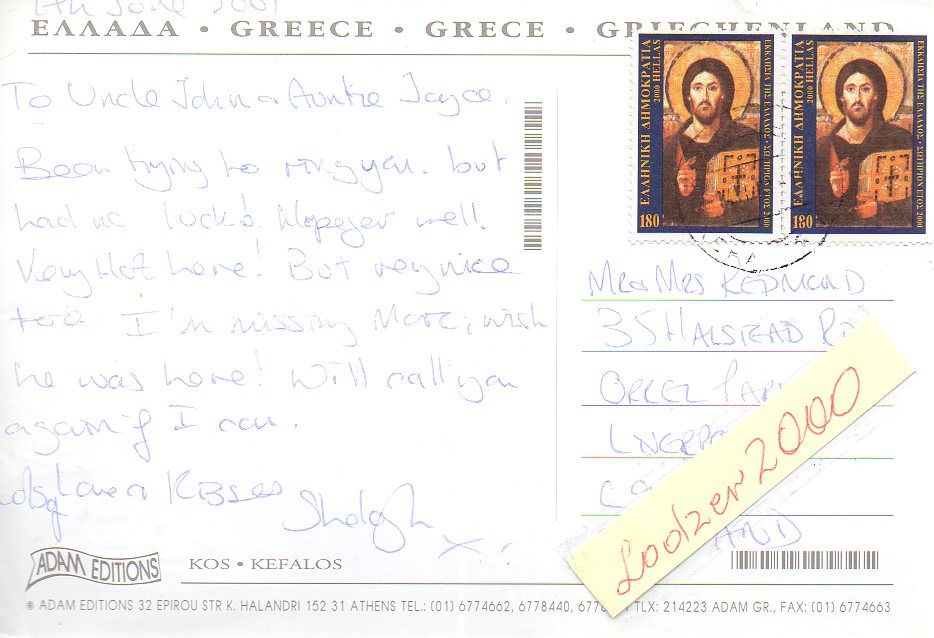 7th June 2001
ΕΛΛΑΔΑ • GREECE • GRECE • GRIECHENLAND
To Uncle John & Auntie Joyce.
Been trying to ring you. but
had no luck! Hope your well.
Very Hot here! But very nice
too. I'm missing Marc, wish
he was here! Will call you
again if I can.
Lots of Love & Kisses
Shelagh
x
ΕΛΛΗΝΙΚΗ ΔΗΜΟΚΡΑΤΙΑ
2000 HELLAS
ΕΚΚΛΗΣΙΑ ΤΗΣ ΕΛΛΑΔΟΣ • ΣΩΤΗΡΙΟΝ ΕΤΟΣ 2000
180
ΕΛΛΗΝΙΚΗ ΔΗΜΟΚΡΑΤΙΑ
2000 HELLAS
ΕΚΚΛΗΣΙΑ ΤΗΣ ΕΛΛΑΔΟΣ • ΣΩΤΗΡΙΟΝ ΕΤΟΣ 2000
180
MR & MRS REDMOND
35 HALSTEAD
ORREL PAR
Lodzer2000
ADAM EDITIONS
KOS • KEFALOS
® ADAM EDITIONS 32 EPIROU STR K. HALANDRI 152 31 ATHENS TEL.: (01) 6774662, 6778440, TLX: 214223 ADAM GR., FAX: (01) 6774663